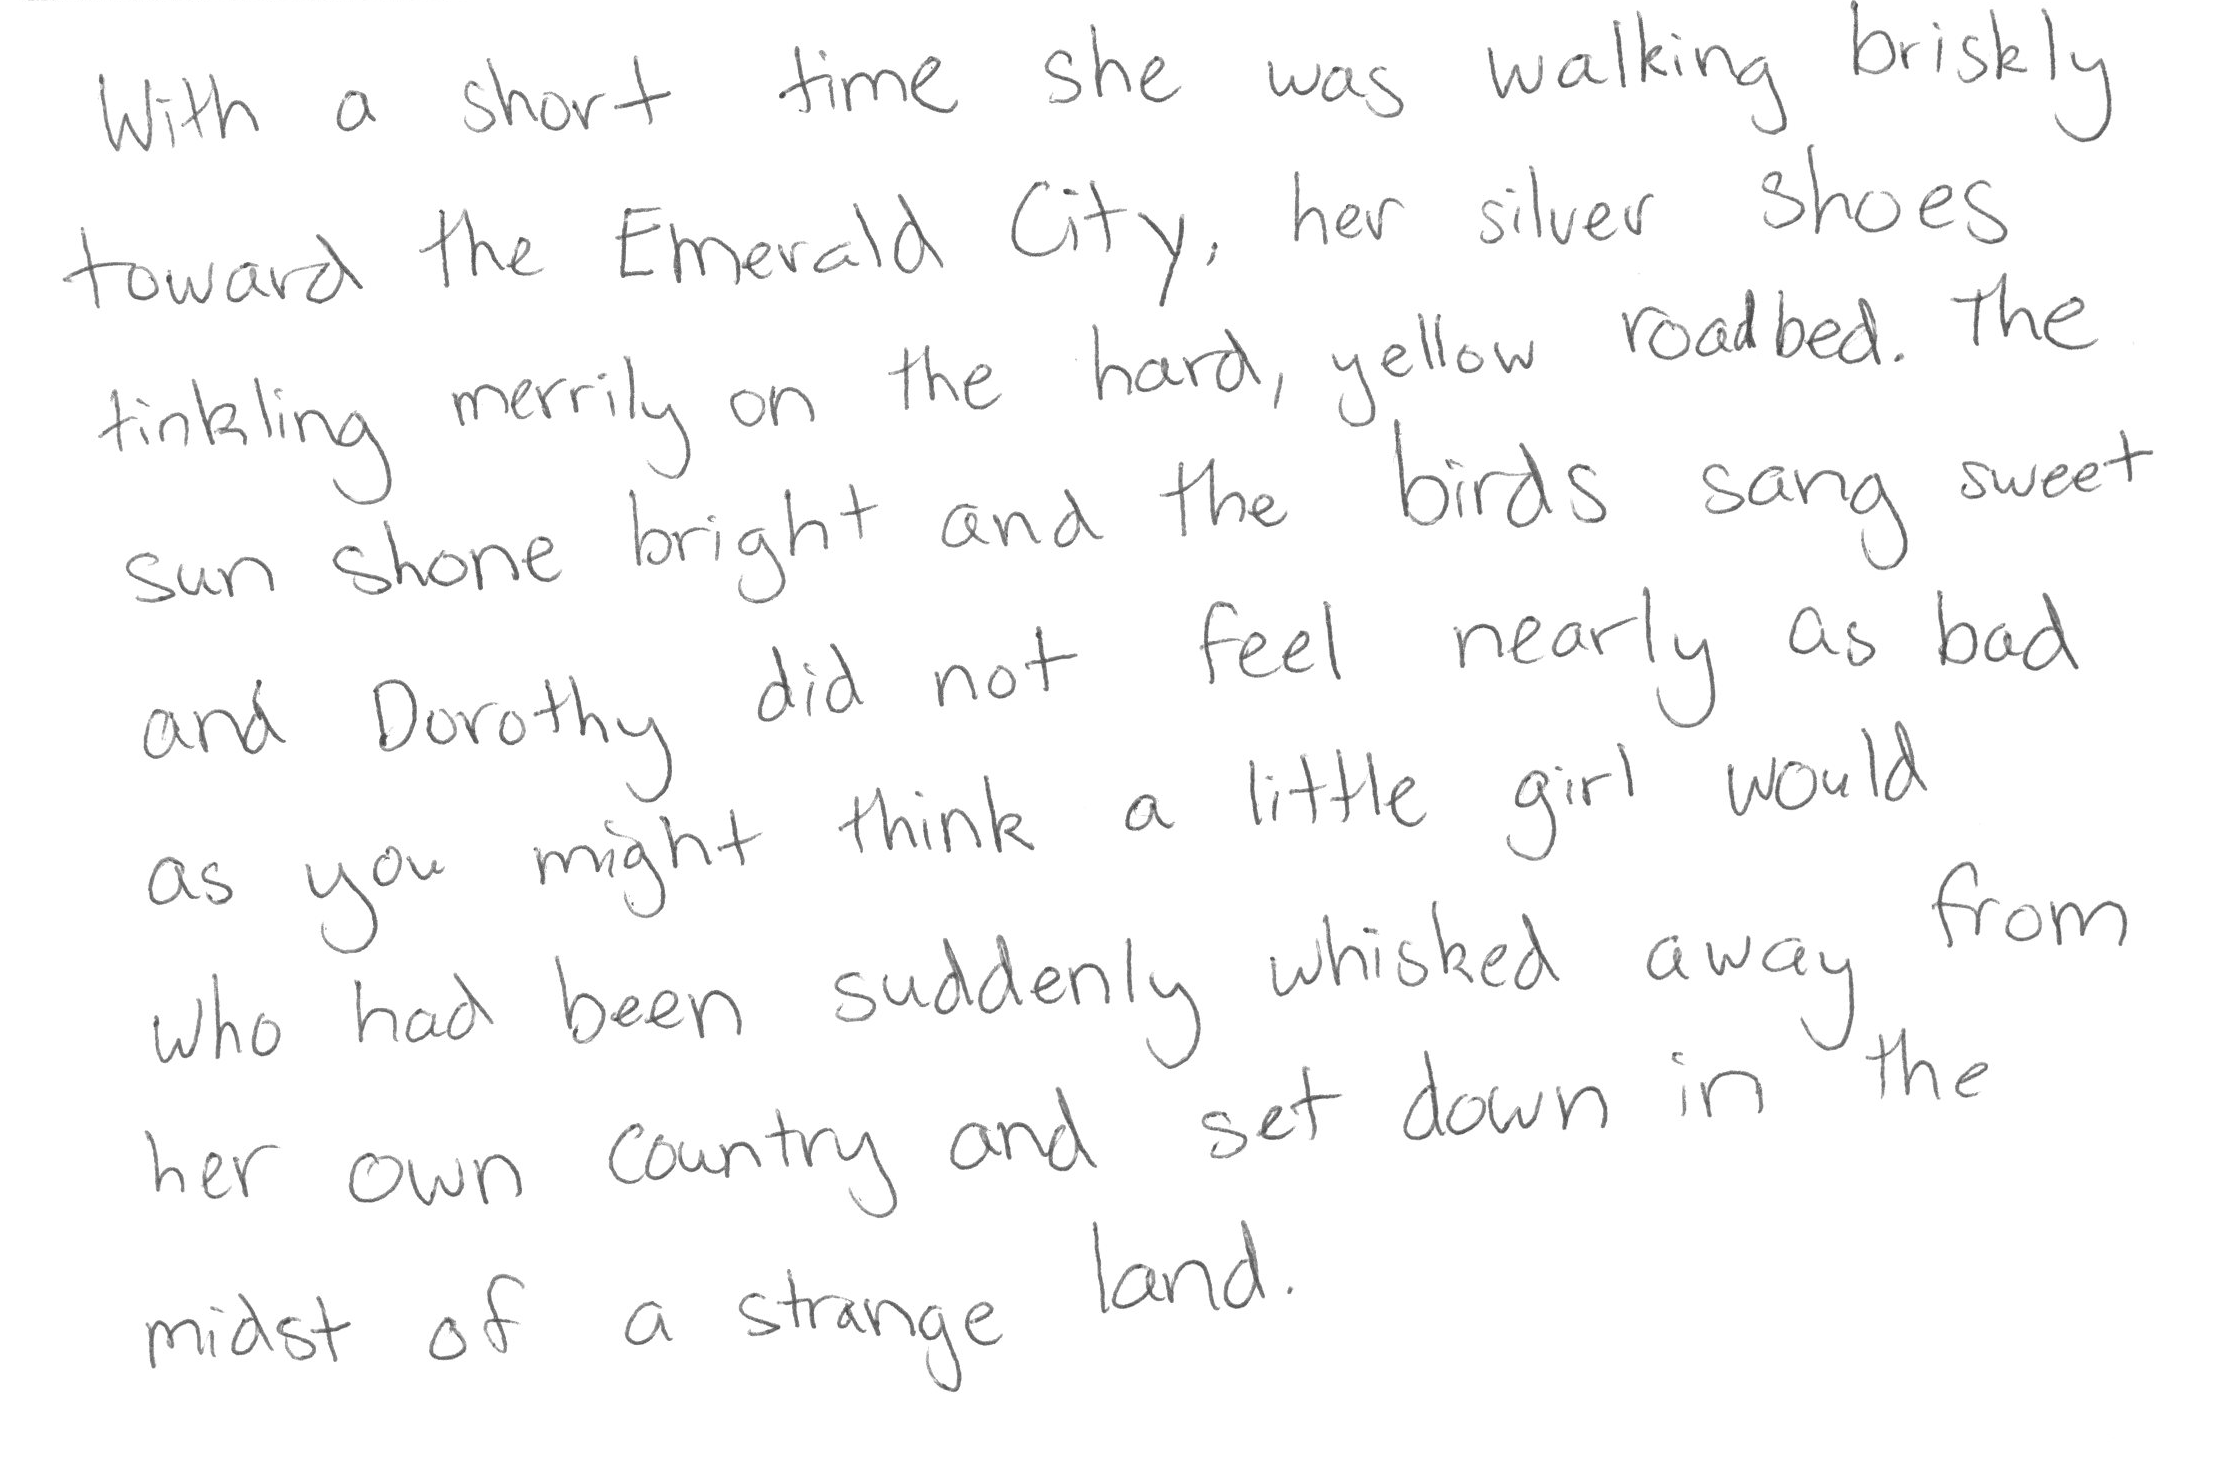 With a short time she was walking briskly
toward the Emerald City, her silver shoes
tinkling merrily on the hard, yellow roadbed. The
sun shone bright and the birds sang sweet
and Dorothy did not feel nearly as bad
as you might think a little girl would
who had been suddenly whisked away from
her own country and set down in the
midst of a strange land.